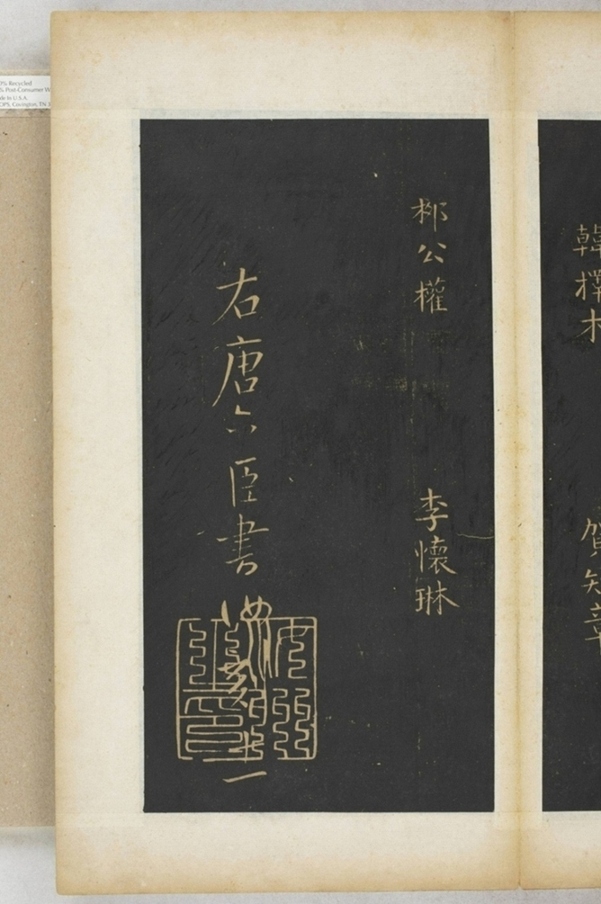 韓擇木
賀知章
柳公權
李懷琳
右唐六臣書
汝 十一
0% Recycled
% Post-Consumer
in U.S.A.
Covington, TN